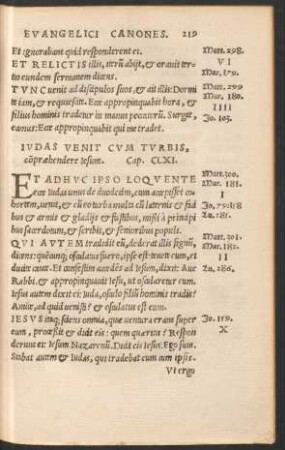 EVANGELICI CANONES. 219
Et ignorabant quid responderent ei. Mar. 298.
ET RELICTIS illis, iterũ abijt, & orauit ter- VI
tio eundem sermonem dicens. Mar. 179.
TVNC uenit ad discipulos suos, & ait illis: Dormi Mat. 299
te iam, & requiescite. Ecce appropinquabit hora, & Mar. 180.
filius hominis tradetur in manus peccatorũ. Surgite, IIII
eamus: Ecce appropinquabit qui me tradet. Io. 103.
IVDAS VENIT CVM TVRBIS,
cõprahendere Iesum. Cap. CLXI.
ET ADHVC IPSO LOQVENTE Mat. 300.
ecce Iudas unus de duodecim, cum accepisset co Mar. 181.
hortem, uenit, & cũ eo turba multa cũ laternis & fa I
cibus & armis & gladijs & fustibus, missi à princi Io. 79. 158
bus sacerdotum, & scribis, & senioribus populi. Lu. 285.
QVI AVTEM tradidit eũ, dederat illis signũ, Mat. 301.
dicens: quẽcunq; osculatus fuero, ipse est: tenete eum, et Mar. 182.
ducite caute. Et confestim accedẽs ad Iesum, dixit: Aue II
Rabbi. & appropinquauit Iesu, ut oscularetur eum. Lu. 286.
Iesus autem dixit ei: Iuda, osculo filiũ hominis tradis?
Amice, ad quid uenisti? & osculatus est eum.
IESVS itaq; sciens omnia, quæ uentura erant super Io. 159.
eum, processit & dicit eis: quem quæritis? Respon X
derunt ei: Iesum Nazarenũ. Dicit eis Iesus: Ego sum.
Stabat autem & Iudas, qui tradebat eum cum ipsis.
Vt ergo